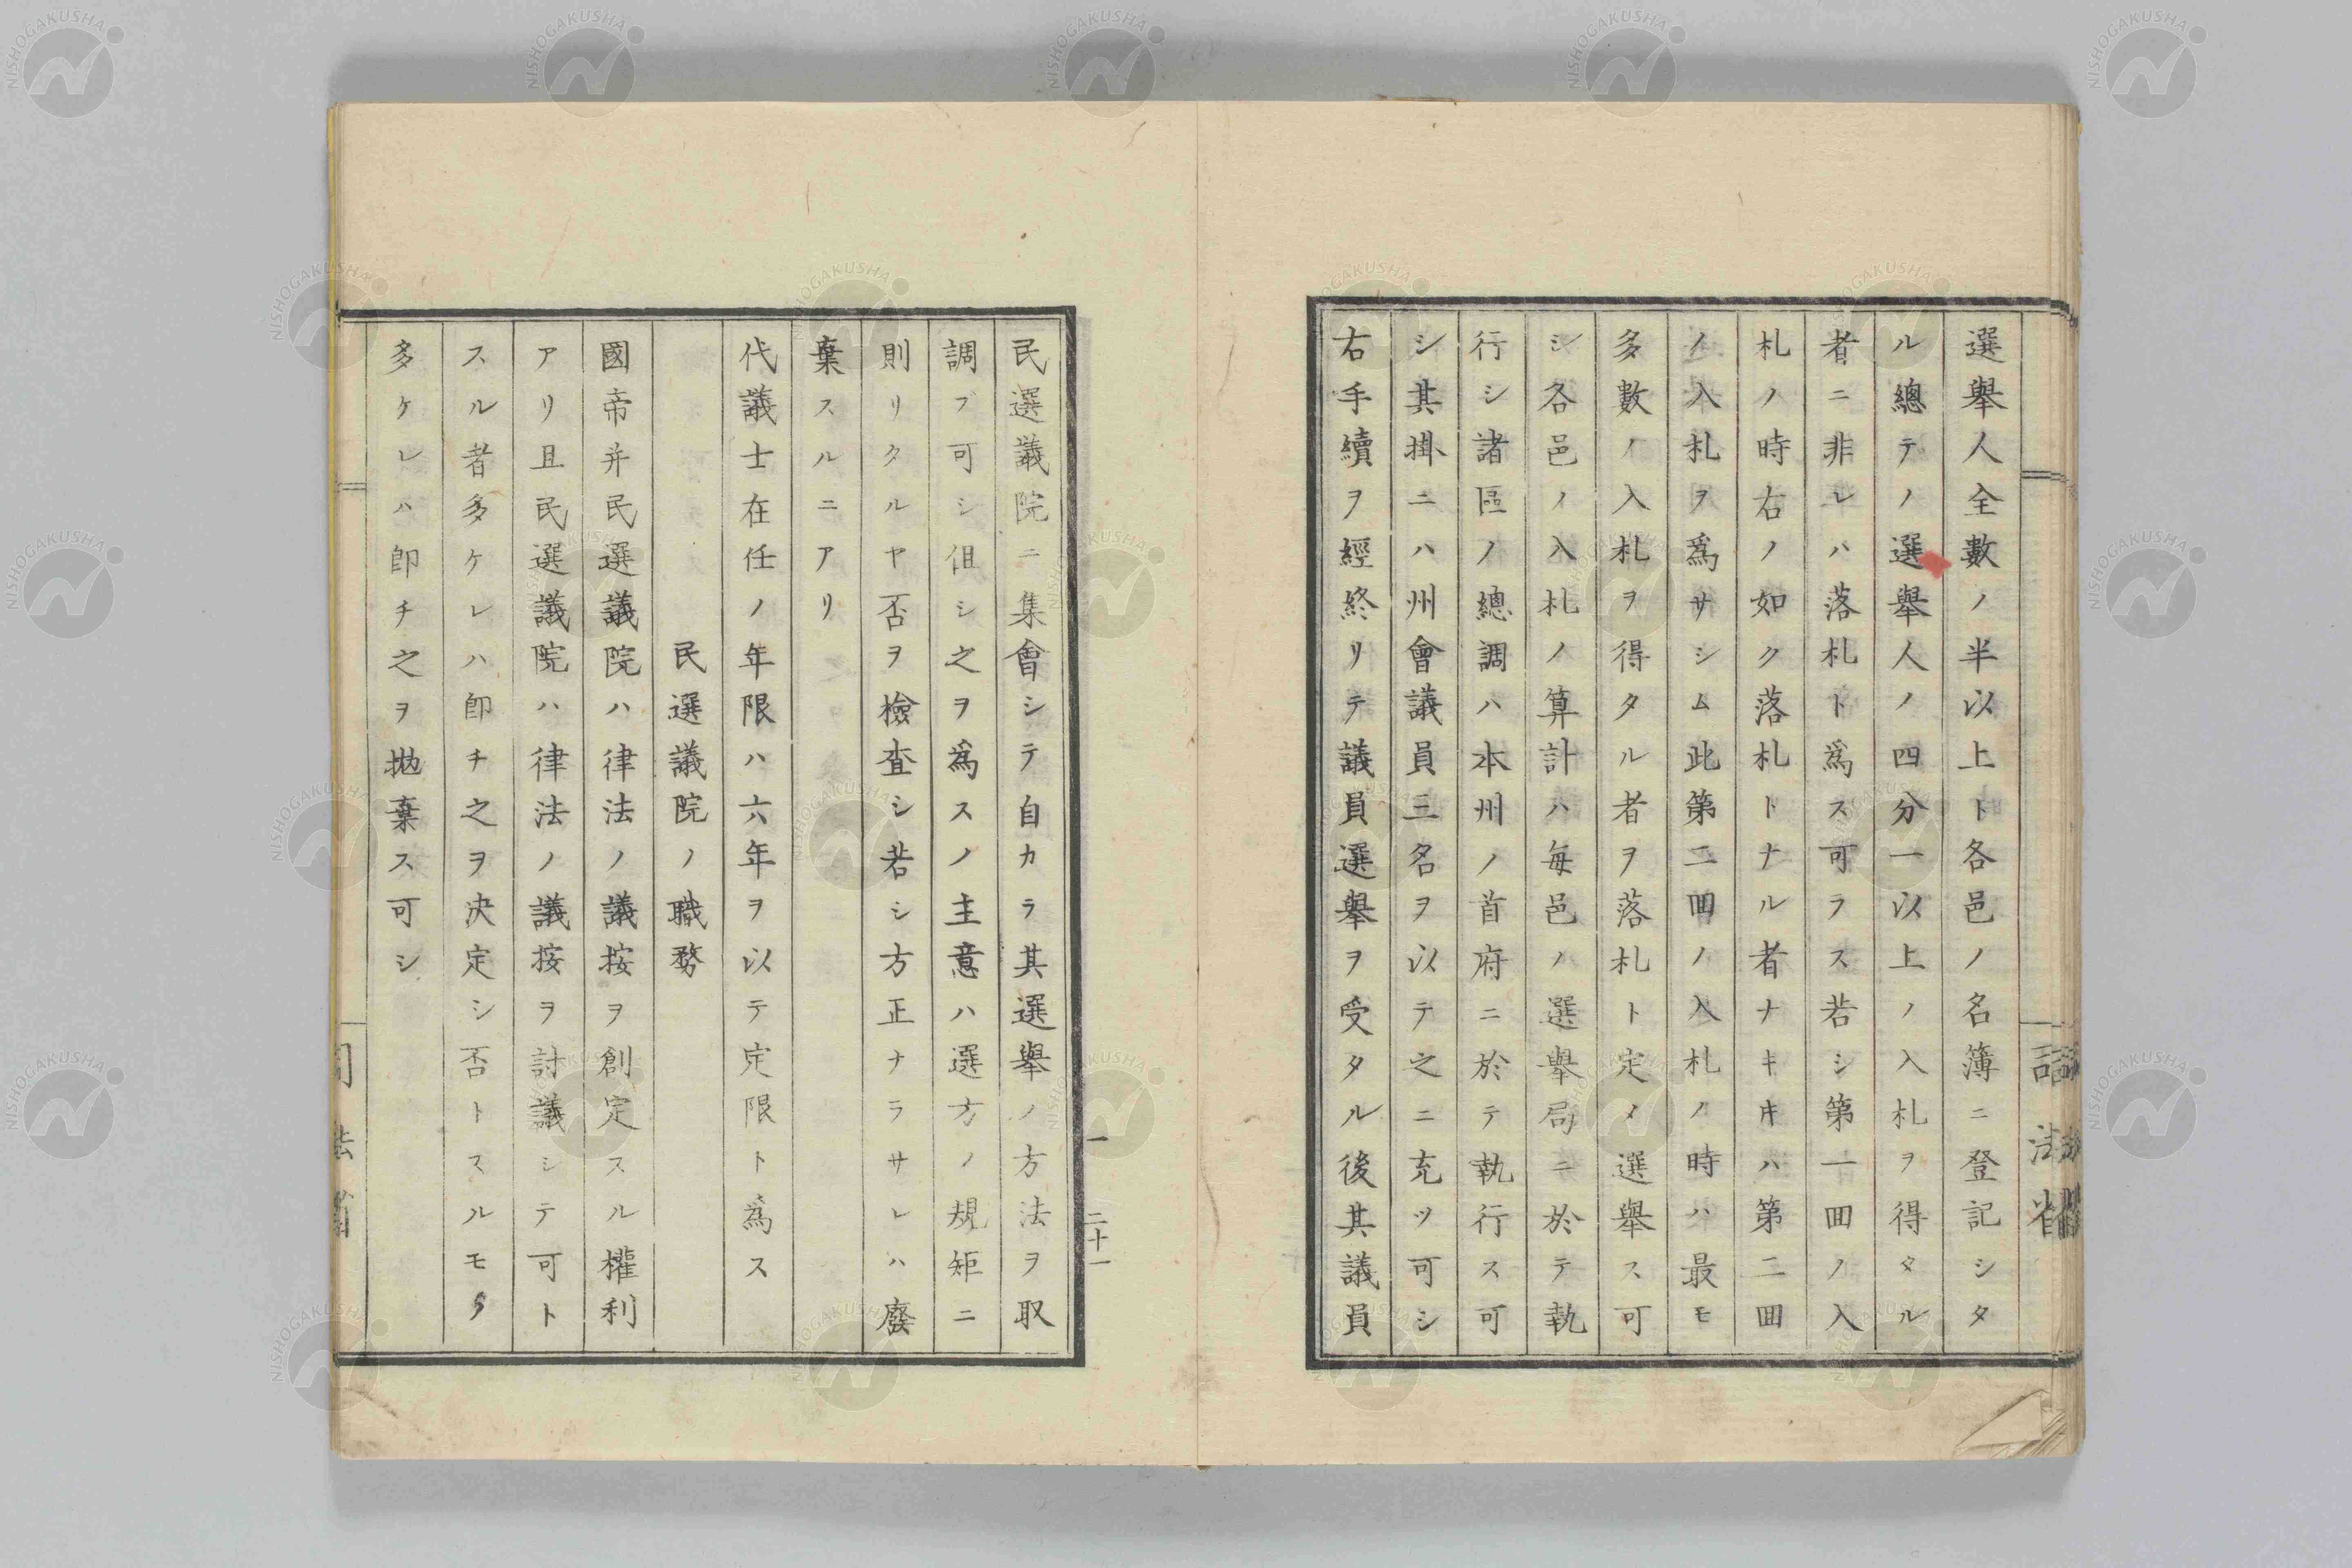 選擧人全數ノ半以上ト各邑ノ名簿ニ登記シタ
ル總テノ選擧人ノ四分一以上ノ入札ヲ得タル
者ニ非レハ落札ト爲ス可ラス若シ第一囬ノ入
札ノ時右ノ如ク落札トナル者ナキ寸ハ第二囬
ノ入札ヲ爲サシム此第二囬ノ入札ノ時ハ最モ
多數ノ入札ヲ得タル者ヲ落札ト定メ選擧ス可
シ各邑ノ入札ノ算計ハ毎邑ノ選擧局ニ於テ執
行シ諸區ノ總調ハ本州ノ首府ニ於テ執行ス可
シ其掛ニハ州會議員三名ヲ以テ之ニ充ツ可シ
右手續ヲ經終リテ議員選擧ヲ受タル後其議員
民選議院ニ集會シテ自カラ其選擧ノ方法ヲ取
調ブ可シ但シ之ヲ爲スノ主意ハ選方ノ規矩ニ
則リタルヤ否ヲ檢査シ若シ方正ナラサレハ廢
棄スルニアリ
代議士在任ノ年限ハ六年ヲ以テ定限ト爲ス
民選議院ノ職務
國帝并民選議院ハ律法ノ議按ヲ創定スル權利
アリ且民選議院ハ律法ノ議按ヲ討議シテ可ト
スル者多ケレハ卽チ之ヲ決定シ否トスルモノ
多ケレハ卽チ之ヲ拋棄ス可シ
一 二十一
司法省
NISHOGAKUSHA